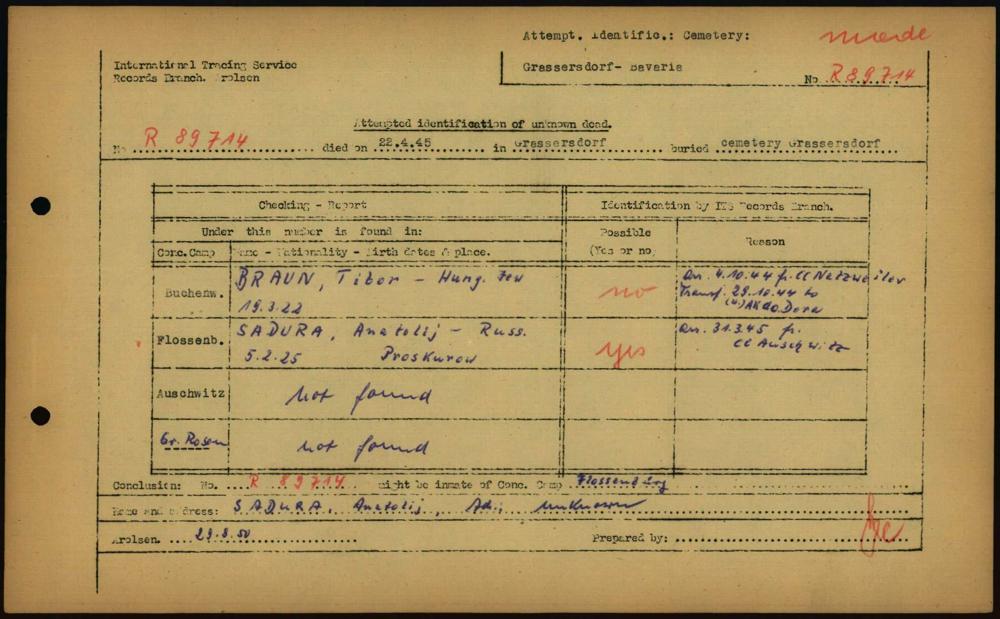 Attempt. Identific.: Cemetery:
made
International Tracing Service
Records Branch. Arolsen
Grassersdorf- Bavaria
No R 89714
Attempted identification of unknown dead.
No R 89714 died on 22.4.45 in Grassersdorf buried cemetery Grassersdorf
Checking - Report
Identification by ITS Records Branch.
Under this number is found in:
Possible
(Yes or no)
Reason
Conc.Camp
Name - Nationality - Birth dates & place.
Buchenw.
BRAUN, Tibor - Hung. Jew
19.3.22
no
arr. 4.10.44 fr. CC Natzweiler
Transf. 29.10.44 to
AKdo Dora
Flossenb.
SADURA, Anatolij - Russ.
5.2.25 Proskurow
yes
arr. 31.3.45 fr.
CC Auschwitz
Auschwitz
not found
Gr. Rosen
not found
Conclusion: No. R 89714 might be inmate of Conc. Camp Flossenburg
Name and address: SADURA, Anatolij, Adr. unknown
Arolsen. 29.8.50
Prepared by: